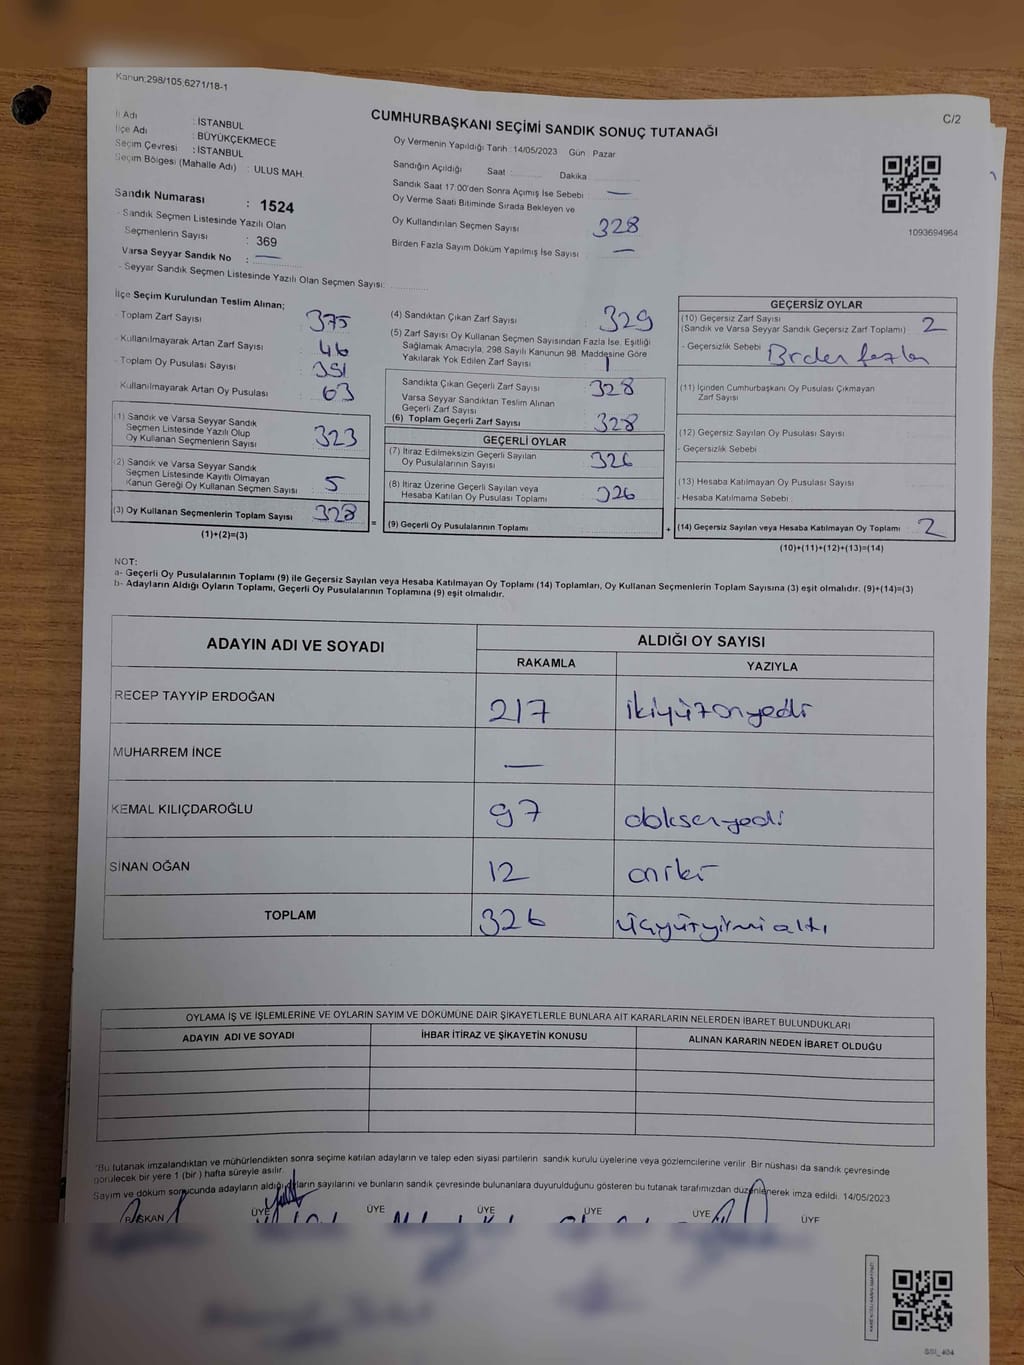 Kanun:298/105,6271/18-1
C/2
CUMHURBAŞKANI SEÇİMİ SANDIK SONUÇ TUTANAĞI
İl Adı : İSTANBUL
İlçe Adı : BÜYÜKÇEKMECE
Seçim Çevresi : İSTANBUL
Seçim Bölgesi (Mahalle Adı) : ULUS MAH.
Oy Vermenin Yapıldığı Tarih :14/05/2023 Gün Pazar
Sandığın Açıldığı Saat Dakika
Sandık Saat 17.00'den Sonra Açımış İse Sebebi : —
Oy Verme Saati Bitiminde Sırada Bekleyen ve
Oy Kullandırılan Seçmen Sayısı 328
Birden Fazla Sayım Döküm Yapılmış İse Sayısı —
1093694964
Sandık Numarası : 1524
- Sandık Seçmen Listesinde Yazılı Olan
Seçmenlerin Sayısı : 369
Varsa Seyyar Sandık No : —
- Seyyar Sandık Seçmen Listesinde Yazılı Olan Seçmen Sayısı:
İlçe Seçim Kurulundan Teslim Alınan;
- Toplam Zarf Sayısı 375
- Kullanılmayarak Artan Zarf Sayısı 46
- Toplam Oy Pusulası Sayısı 391
- Kullanılmayarak Artan Oy Pusulası 63
(1) Sandık ve Varsa Seyyar Sandık
Seçmen Listesinde Yazılı Olup
Oy Kullanan Seçmenlerin Sayısı 323
(2) Sandık ve Varsa Seyyar Sandık
Seçmen Listesinde Kayıtlı Olmayan
Kanun Gereği Oy Kullanan Seçmen Sayısı 5
(3) Oy Kullanan Seçmenlerin Toplam Sayısı 328
(1)+(2)=(3)
(4) Sandıktan Çıkan Zarf Sayısı 329
(5) Zarf Sayısı Oy Kullanan Seçmen Sayısından Fazla İse, Eşitliği
Sağlamak Amacıyla, 298 Sayılı Kanunun 98. Maddesine Göre
Yakılarak Yok Edilen Zarf Sayısı 1
Sandıkta Çıkan Geçerli Zarf Sayısı 328
Varsa Seyyar Sandıktan Teslim Alınan
Geçerli Zarf Sayısı
(6) Toplam Geçerli Zarf Sayısı 328
GEÇERLİ OYLAR
(7) İtiraz Edilmeksizin Geçerli Sayılan
Oy Pusulalarının Sayısı 326
(8) İtiraz Üzerine Geçerli Sayılan veya
Hesaba Katılan Oy Pusulası Toplamı 326
= (9) Geçerli Oy Pusulalarının Toplamı +
GEÇERSİZ OYLAR
(10) Geçersiz Zarf Sayısı
(Sandık ve Varsa Seyyar Sandık Geçersiz Zarf Toplamı) 2
- Geçersizlik Sebebi Birden fazla
(11) İçinden Cumhurbaşkanı Oy Pusulası Çıkmayan
Zarf Sayısı
(12) Geçersiz Sayılan Oy Pusulası Sayısı
- Geçersizlik Sebebi
(13) Hesaba Katılmayan Oy Pusulası Sayısı
- Hesaba Katılmama Sebebi :
(14) Geçersiz Sayılan veya Hesaba Katılmayan Oy Toplamı 2
(10)+(11)+(12)+(13)=(14)
NOT:
a- Geçerli Oy Pusulalarının Toplamı (9) ile Geçersiz Sayılan veya Hesaba Katılmayan Oy Toplamı (14) Toplamları, Oy Kullanan Seçmenlerin Toplam Sayısına (3) eşit olmalıdır. (9)+(14)=(3)
b- Adayların Aldığı Oyların Toplamı, Geçerli Oy Pusulalarının Toplamına (9) eşit olmalıdır.
ADAYIN ADI VE SOYADI ALDIĞI OY SAYISI
RAKAMLA YAZIYLA
RECEP TAYYİP ERDOĞAN 217 ikiyüzonyedi
MUHARREM İNCE —
KEMAL KILIÇDAROĞLU 97 doksanyedi
SİNAN OĞAN 12 oniki
TOPLAM 326 üçyüzyirmi altı
OYLAMA İŞ VE İŞLEMLERİNE VE OYLARIN SAYIM VE DÖKÜMÜNE DAİR ŞİKAYETLERLE BUNLARA AİT KARARLARIN NELERDEN İBARET BULUNDUKLARI
ADAYIN ADI VE SOYADI İHBAR İTİRAZ VE ŞİKAYETİN KONUSU ALINAN KARARIN NEDEN İBARET OLDUĞU
"Bu tutanak imzalandıktan ve mühürlendikten sonra seçime katılan adayların ve talep eden siyasi partilerin sandık kurulu üyelerine veya gözlemcilerine verilir Bir nüshası da sandık çevresinde
görülecek bir yere 1 (bir) hafta süreyle asılır.
Sayım ve döküm sonucunda adayların aldığı oyların sayılarını ve bunların sandık çevresinde bulunanlara duyurulduğunu gösteren bu tutanak tarafımızdan düzenlenerek imza edildi. 14/05/2023
BAŞKAN ÜYE ÜYE ÜYE ÜYE ÜYE ÜYE
SSI_404